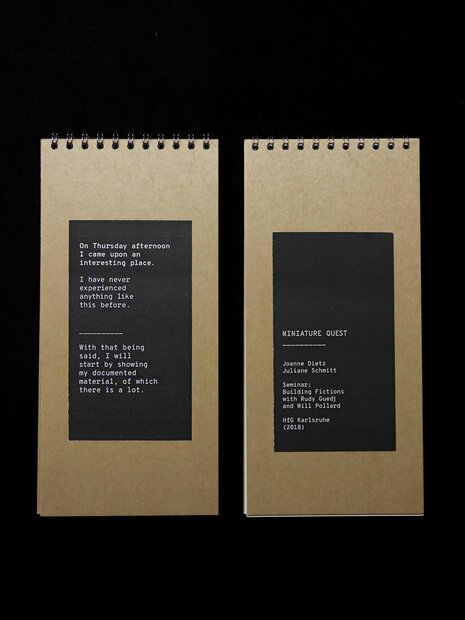 On Thursday afternoon
I came upon an
interesting place.
I have never
experienced
anything like
this before.
__________
With that being
said, I will
start by showing
my documented
material, of which
there is a lot.
MINIATURE QUEST
__________
Joanne Dietz
Juliane Schmitt
Seminar:
Building Fictions
with Rudy Guedj
and Will Pollard
HfG Karlsruhe
(2018)